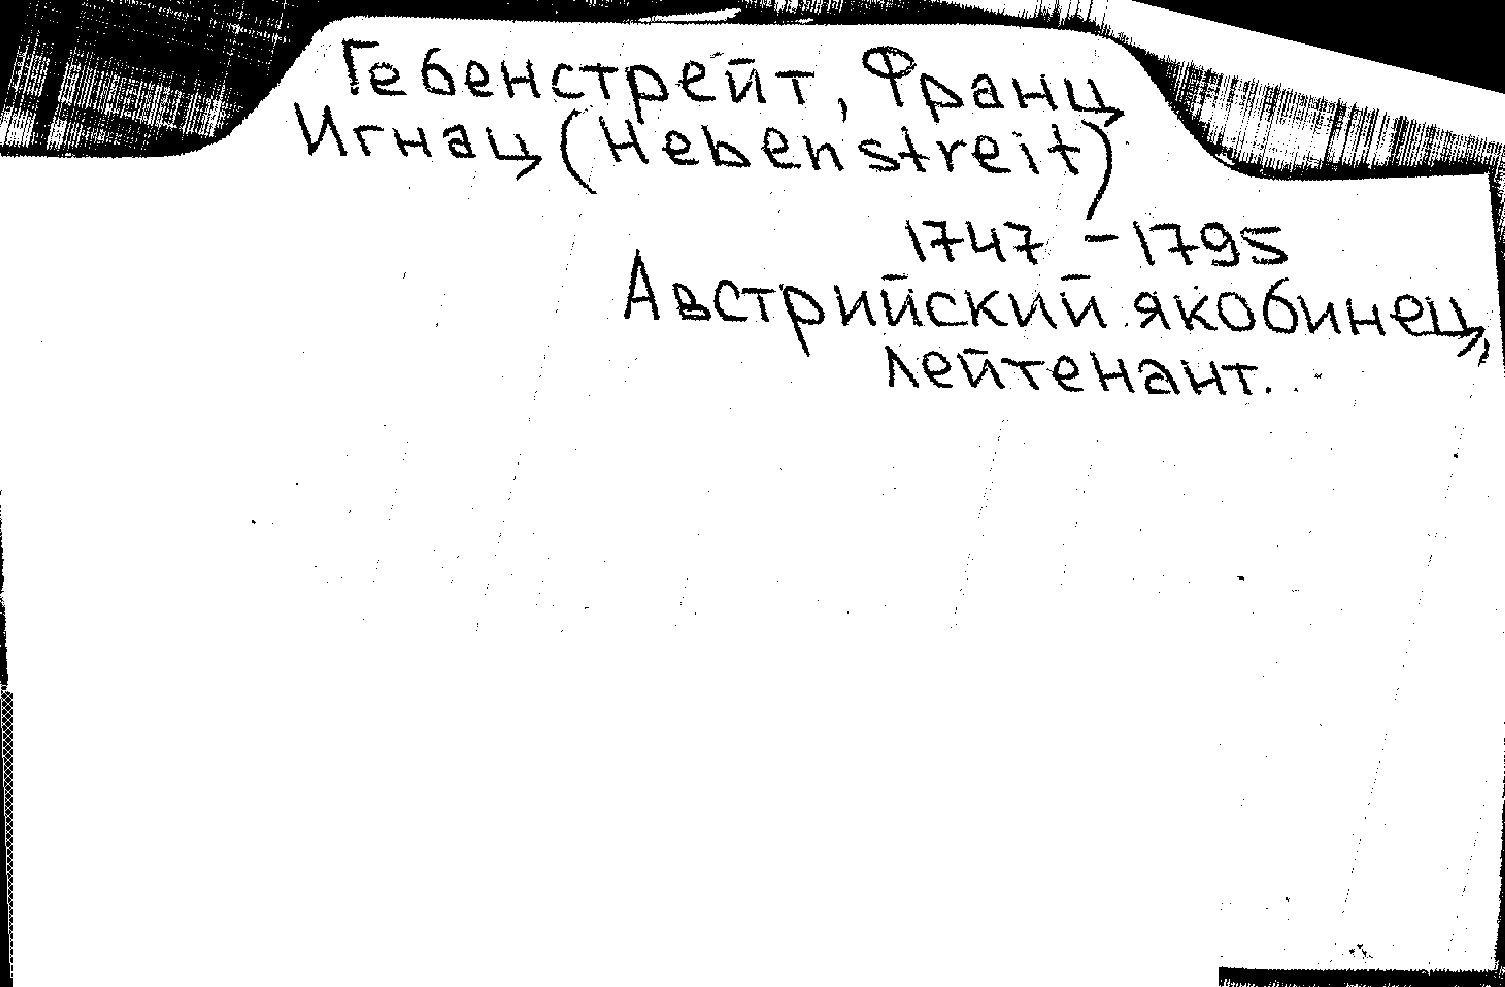 Гебенстрейт, Франц
Игнац (Hebenstreit)
1747 - 1795
Австрийский якобинец,
лейтенант.